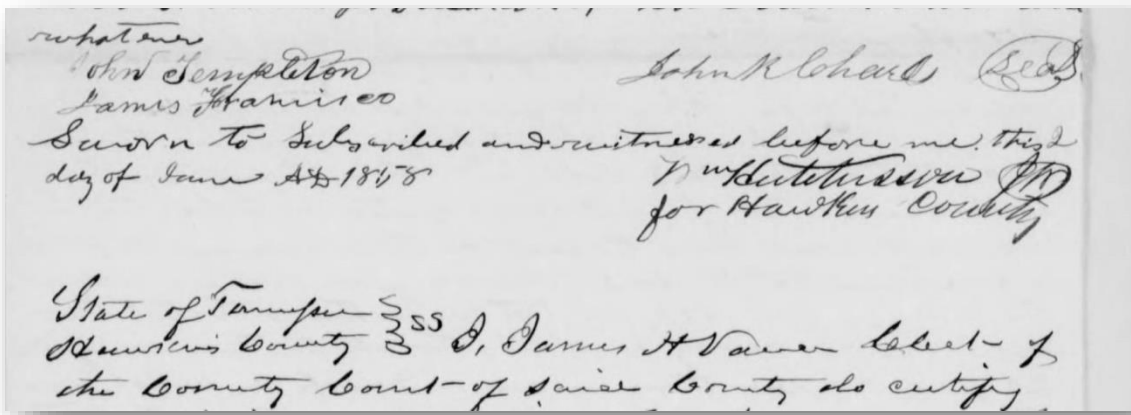 whatever
John Templeton John R Charls Seal
James Francisco
Sworn to Subscribed and witnessed before me this 2
day of June AD 1858 Wm Hutchisson JP
for Hawkins County
State of Tennessee
Hawkins County SS I, James H Vance Clerk of
the County Court of said County do certify